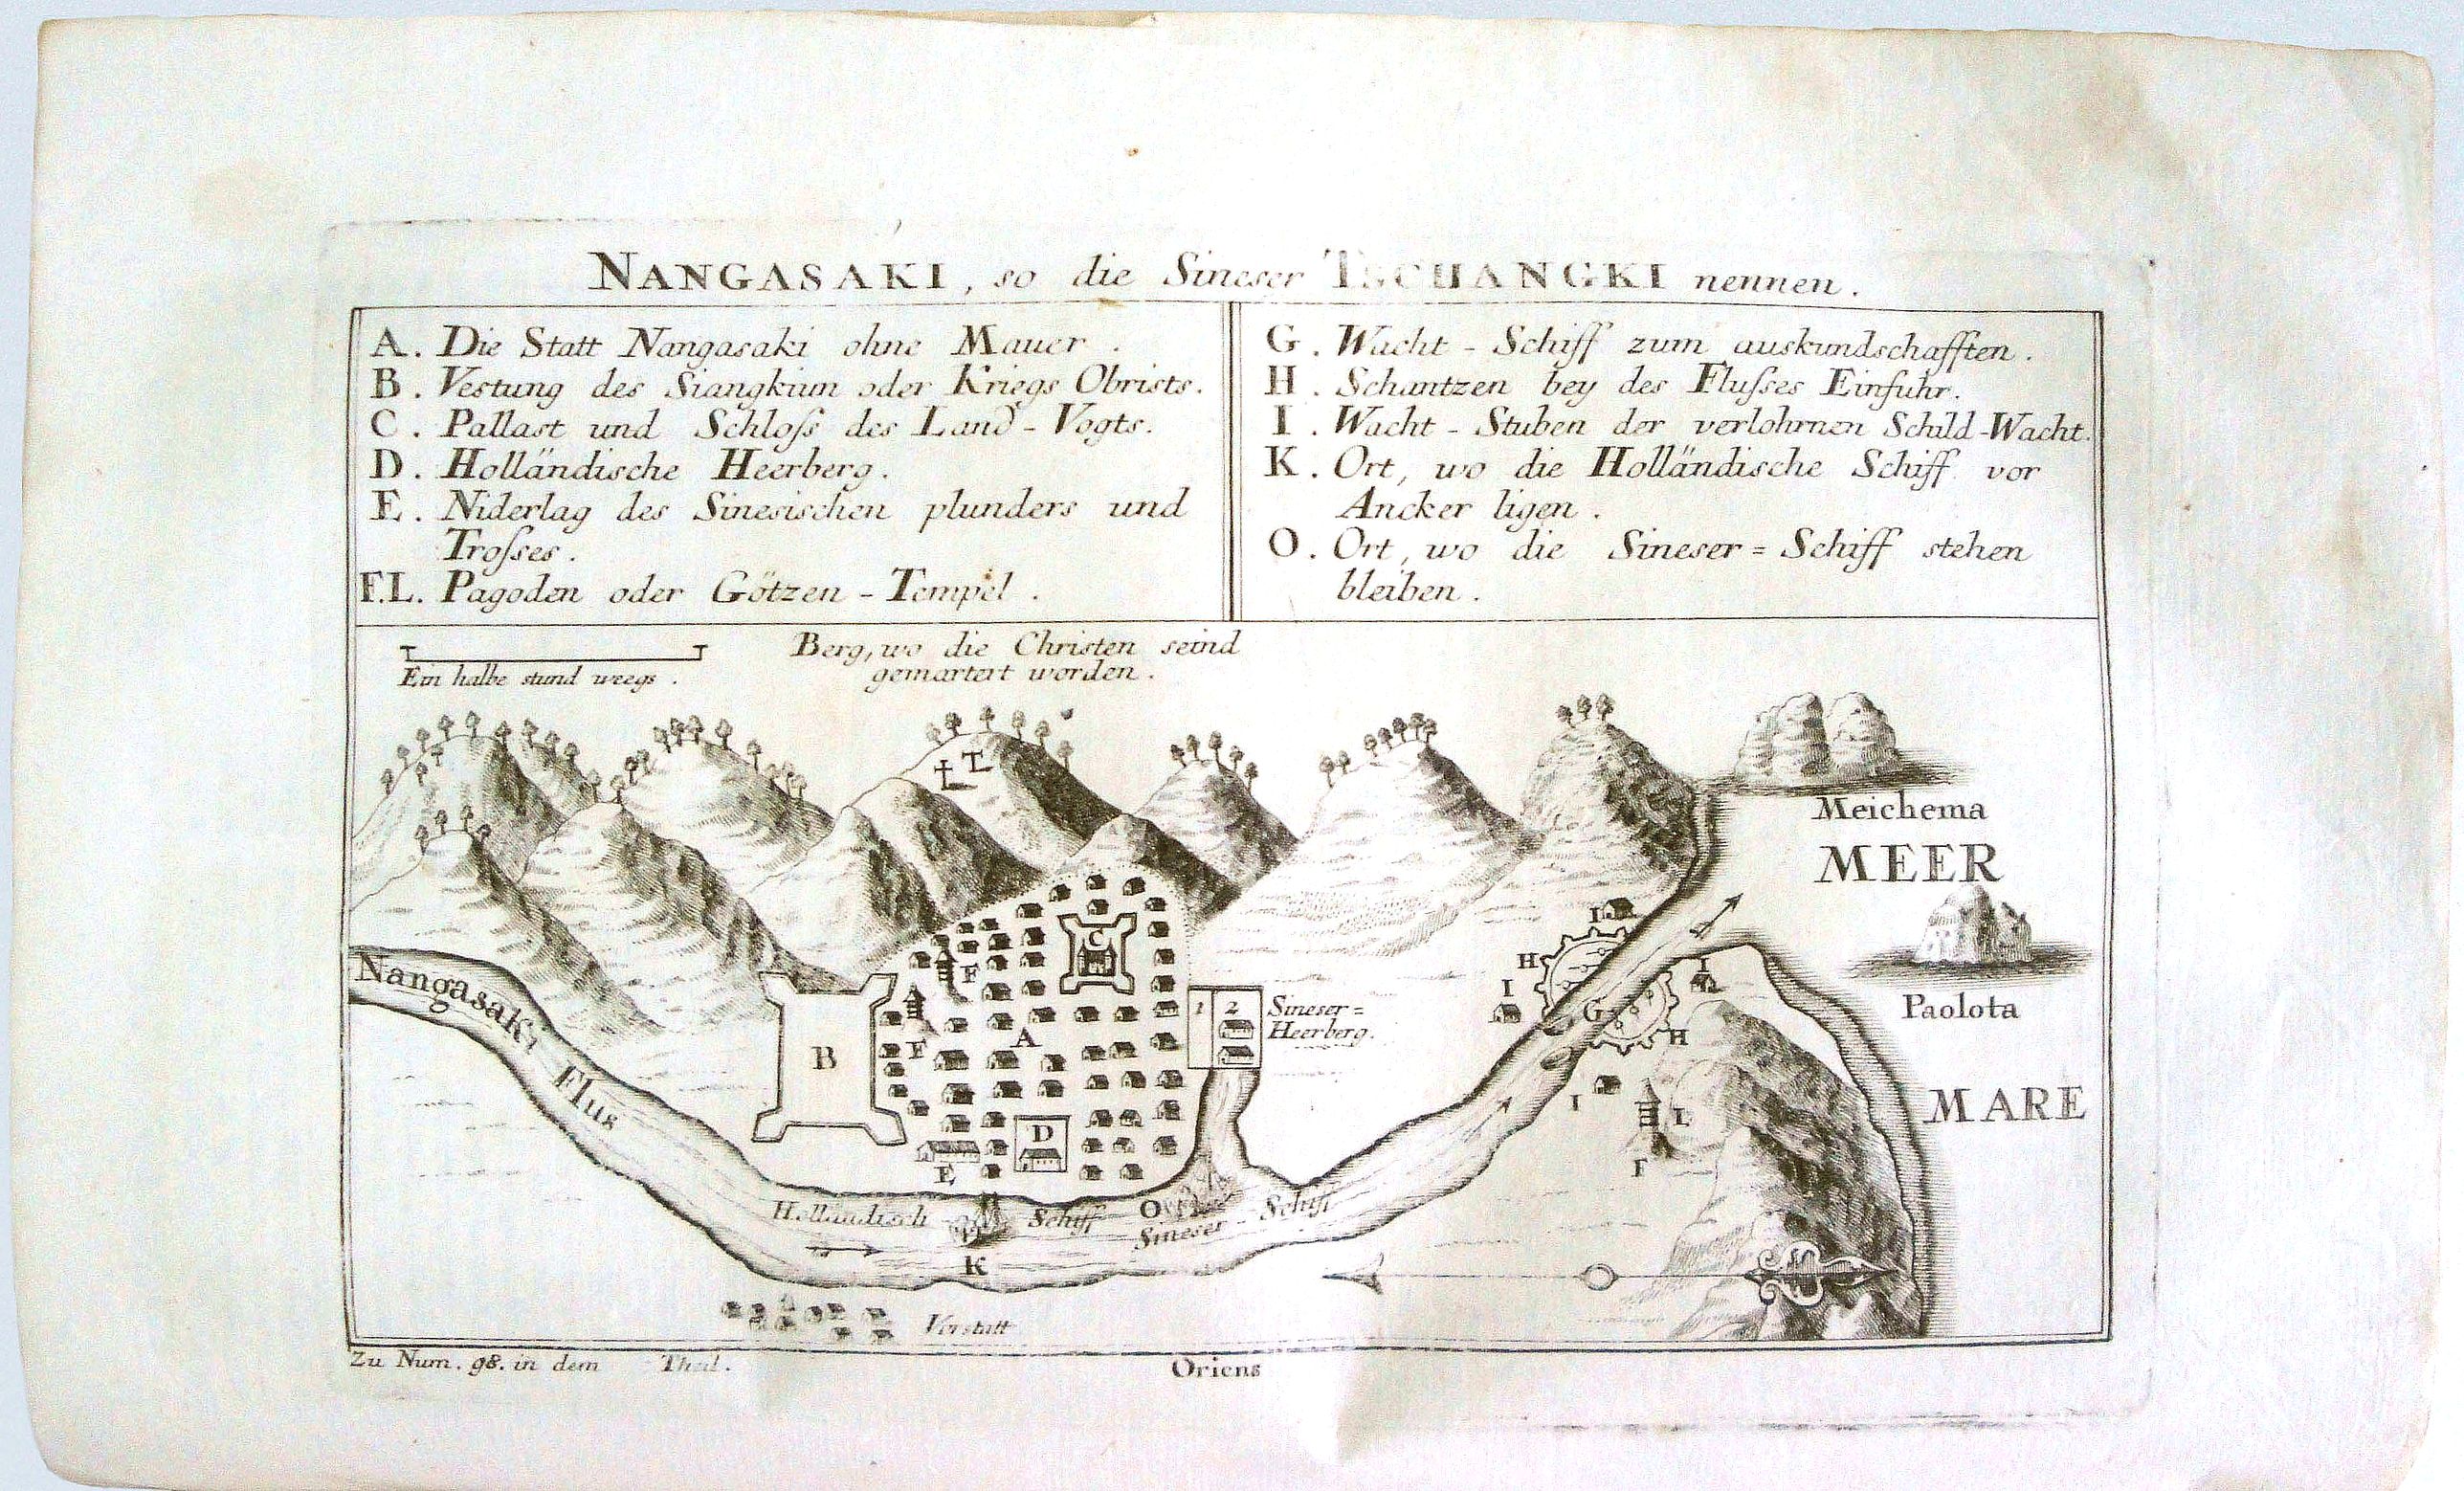 NANGASAKI, so die Sineser TSCHANGKI nennen.
A. Die Statt Nangasaki ohne Mauer.
B. Vestung des Siangkiun oder Kriegs Obrists.
C. Pallast und Schloſs des Land-Vogts.
D. Holländische Heerberg.
E. Niderlag des Sinesischen plunders und
Troſses.
F.L. Pagoden oder Götzen-Tempel.
G. Wacht-Schiff zum auskundschafften.
H. Schantzen bey des Fluſses Einfuhr.
I. Wacht-Stuben der verlohrnen Schild-Wacht.
K. Ort, wo die Holländische Schiff vor
Ancker ligen.
O. Ort, wo die Sineser=Schiff stehen
bleiben.
Ein halbe stund weegs.
Berg, wo die Christen seind
gemartert worden.
Meichema
MEER
Paolota
MARE
Nangasaki Flus
C
I
F
H
I
I
1 2
Sineser=
Heerberg.
G
A
B
F
H
I
L
D
E
F
Holländisch Schiff
O
Sineser-Schiff
K
Vorstatt
Zu Num. 98. in dem Theil.
Oriens